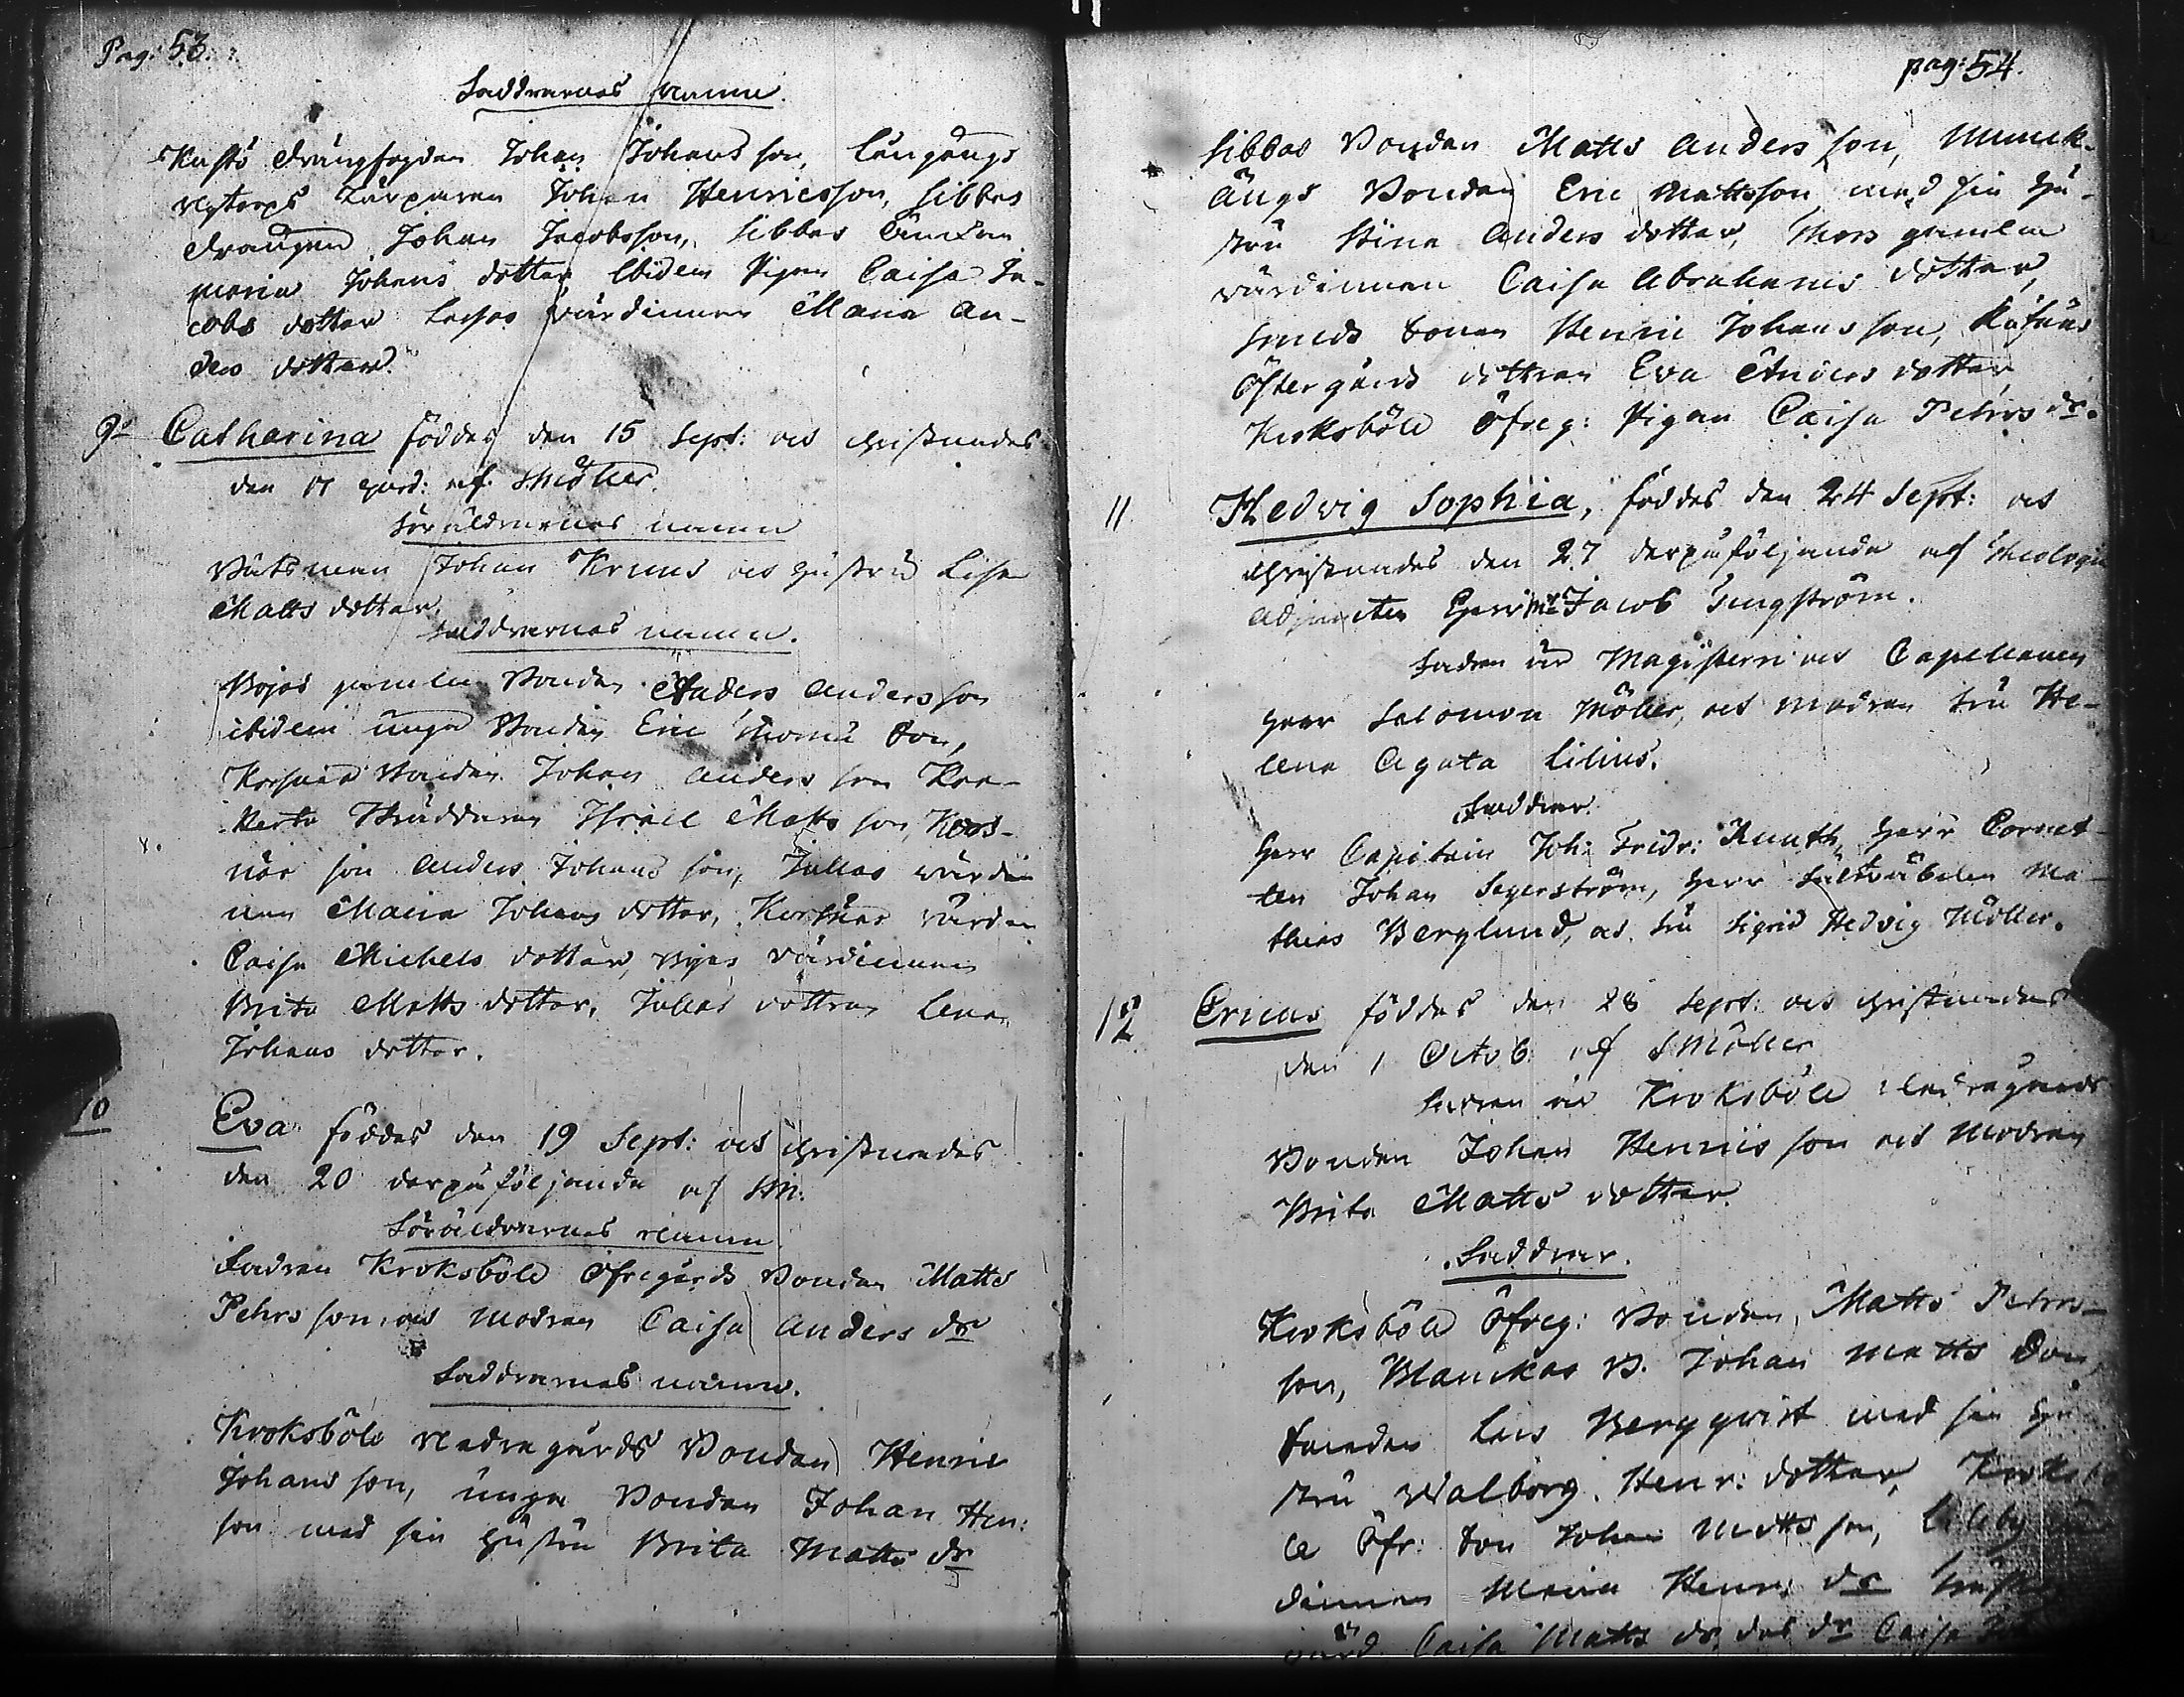 Pag: 53.
Faddrarnas namn.
Kustö Drängfogden Johan Johansson, Långängs
nytorps Torparen Johan Henricsson, Sibbes
Drängen Johan Jacobsson, Sibbes Enckan
Maria Johans dotter, ibidem Pigan Caisa Ja-
cobs dotter Lassas värdinnan Maria An-
ders dotter.
9. Catharina föddes den 15 Sept: och christnades
den 17 ejusd: af SMöller.
Föräldrarnas namn
Båtsman Johan Kruus och hustru Lisa
Matts dotter.
Faddrarnas namn.
Böjas gamla Bonden Anders Andersson
ibidem unga Bonden Eric Thomæ Son,
Korsnäs Bonden Johan Andersson
Skräddaren Israel Mattsson, Kors-
näs son Anders Johansson, Jullas värdin-
nan Maria Johans dotter, Korsnäs värdin
Caisa Michels dotter, Böjas värdinnan
Brita Matts dotter, Jullas dottren Lena
Johans dotter.
10 Eva föddes den 19 Sept: och christnades
den 20 derpåföljande af SM:
Föräldrarnas namn.
Fadren Kroksböle Öfregårds Bonden Matts
Pehrsson, och modren Caisa Anders dr
Faddrarnas namn.
Kroksböle Nedregårds Bonden Henric
Johansson, unga Bonden Johan Hen:
son med sin hustru Brita Matts dr
pag: 54.
Sibbas Bonden Matts Andersson, Munck-
ängs Bonden Eric Mattsson med sin hu-
stru Stina Anders dotter, Thors gamla
värdinnan Caisa Abrahams dotter,
Smeds Sonen Henric Johansson,
Östergårds dottren Eva Anders dotter
Kroksböle Öfreg: Pigan Caisa Pehrs dr.
11 Hedvig Sophia, föddes den 24 Sept: och
christnades den 27 derpåföljande af Theologiæ
Adjuncten Herr Mr Jacob Tengström.
Fadren är Magistern och Capellanen
Herr Salomon Möller, och modren Fru He-
lena Agata Lilius.
Faddrar.
Herr Capitain Joh: Fridr: Knuth, Herr Cornet-
ten Johan Segerström, Herr Fältväbelen Ma-
thias Berglund, och Fru Sigrid Hedvig Möller.
12 Ericus föddes den 28 Sept: och christnades
den 1 Octob: af SMöller
Fadren är Kroksböle Nedregårds
Bonden Johan Henricsson och Modren
Brita Matts dotter.
Faddrar.
Kroksböle Öfreg: Bonden, Matts Pehrs-
son, Blanckas B. Johan Matts Son,
Smeden Lars Bergqvist med sin hu
stru Walborg Henr: dotter, Kroksbö
le Öfr: Son Johan Mattsson, Lillby
dinnan Maria Henr: dr
värd. Caisa Matts dr, das dr Caisa